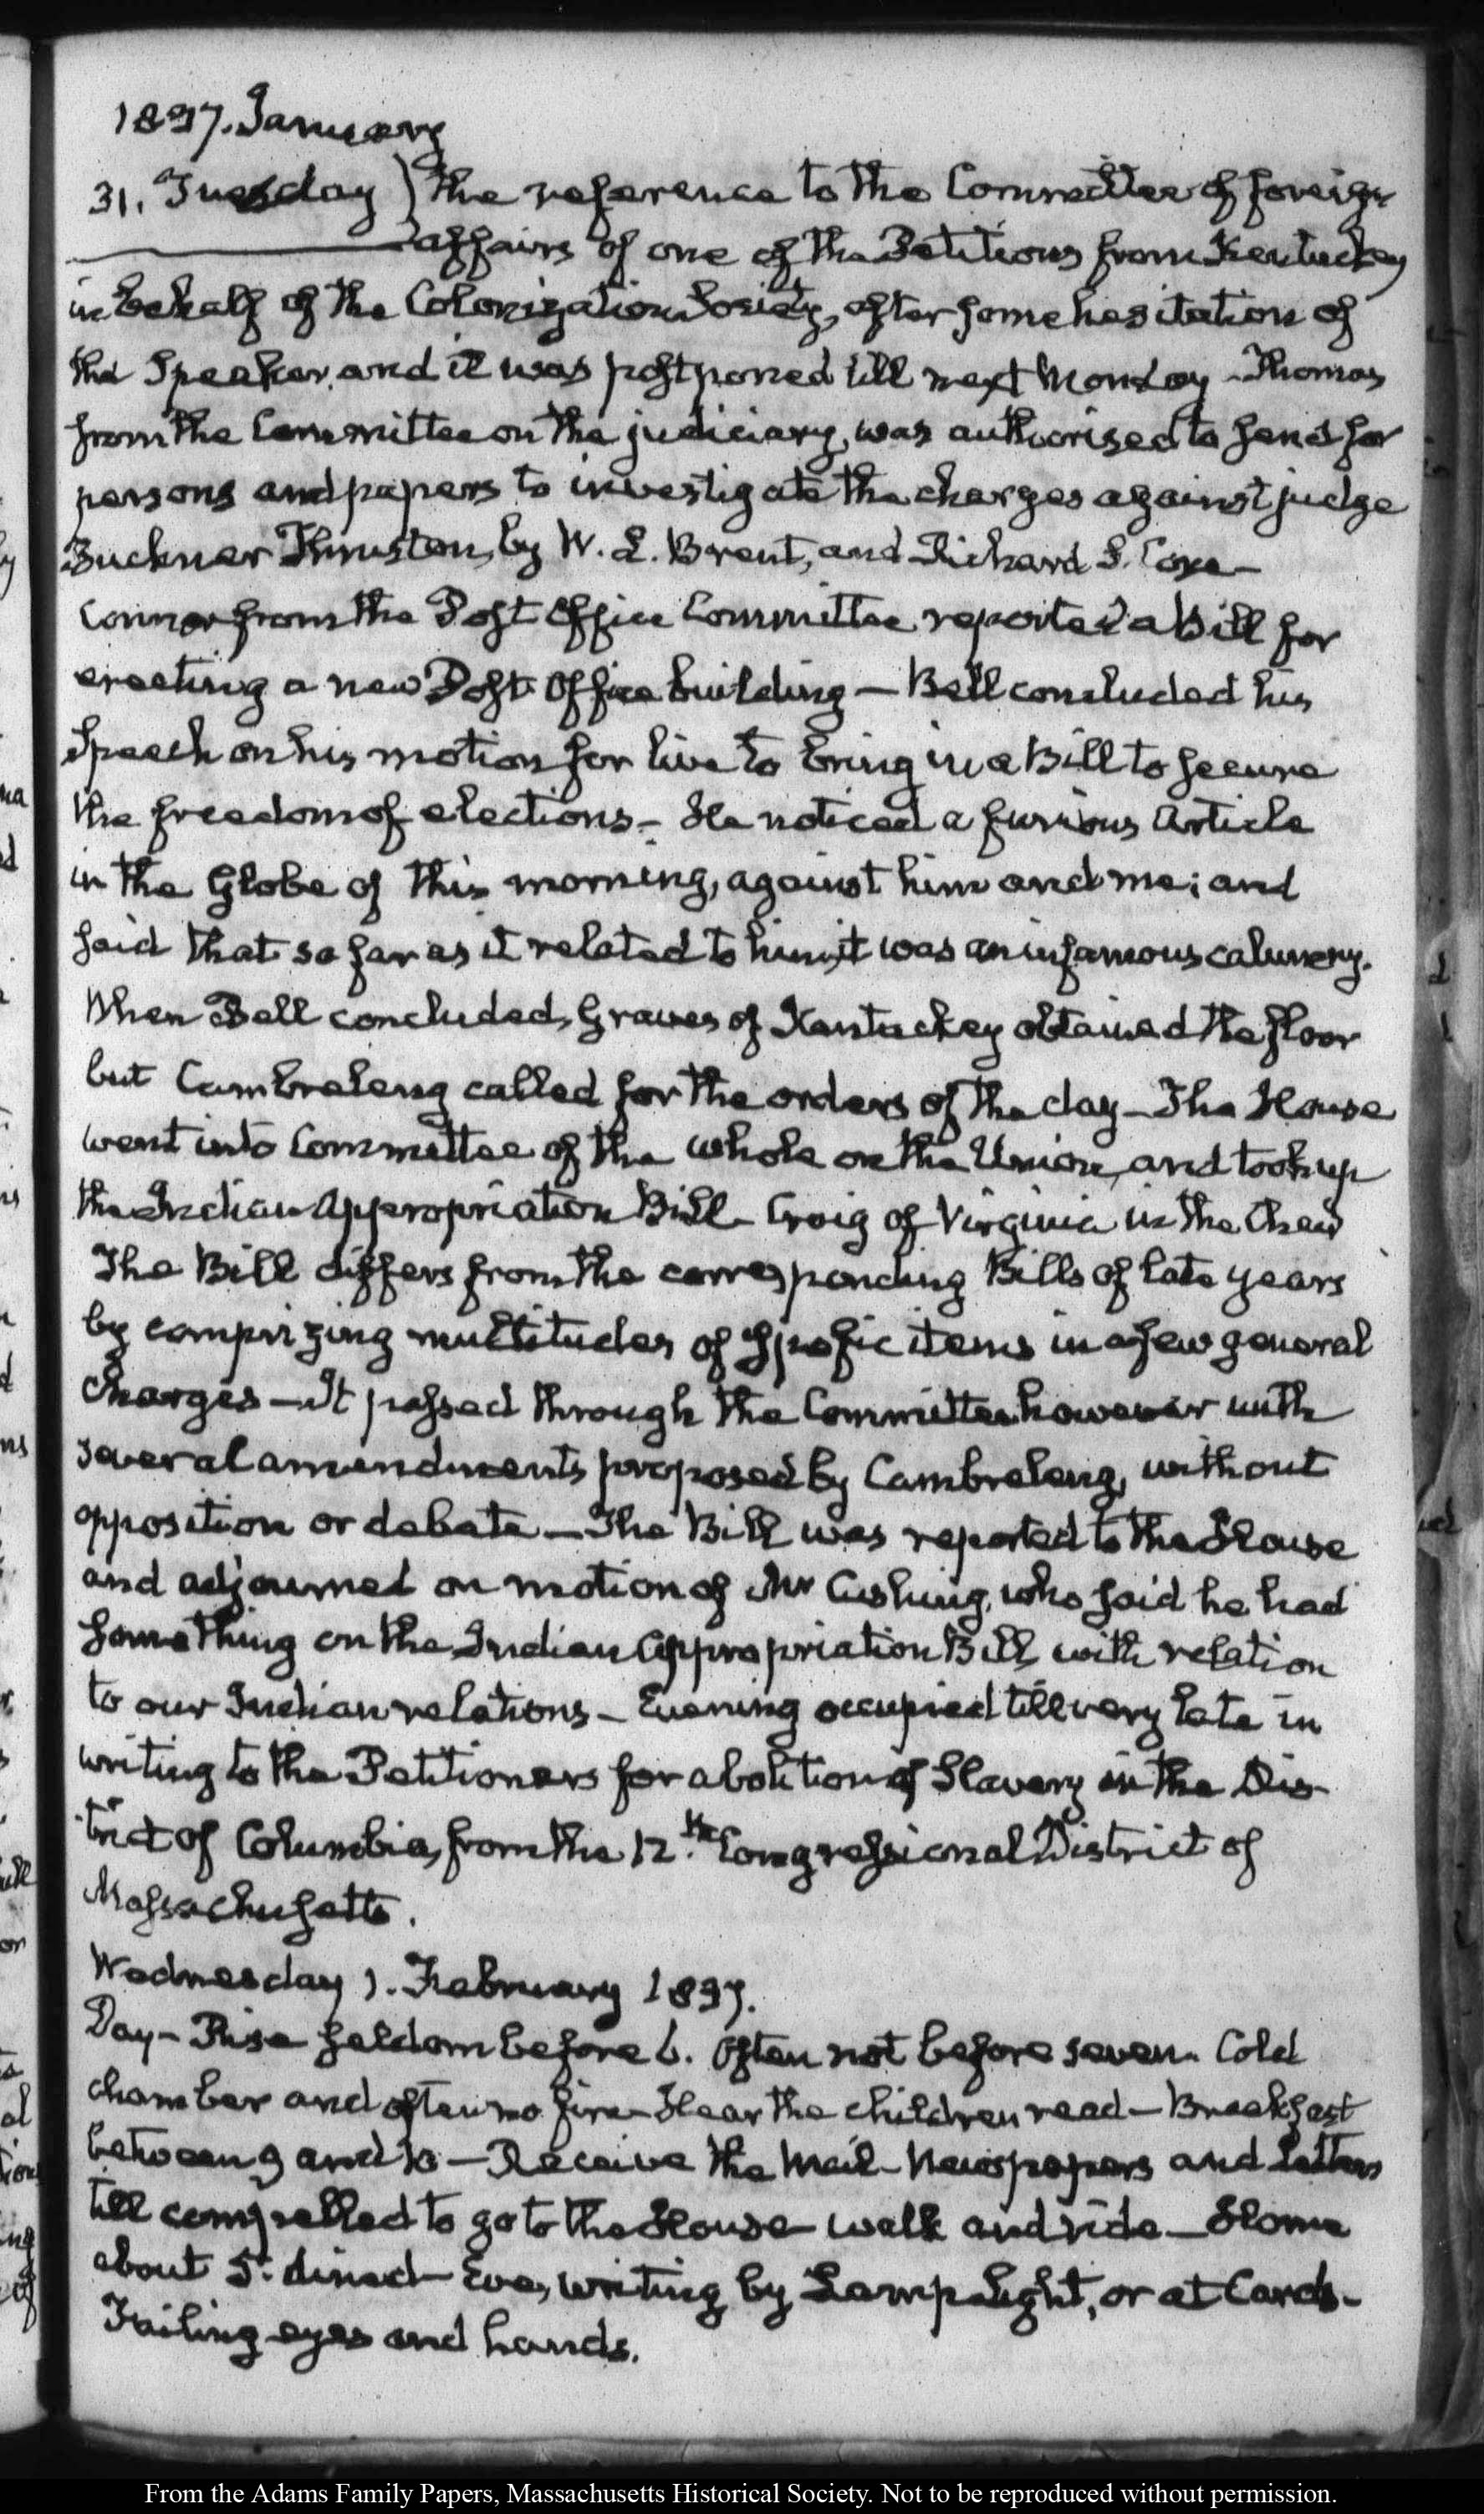 1837. January
31. Tuesday) the reference to the Committee of foreign
affairs of one of the Petitions from Kentucky
in behalf of the Colonization Society, after some hesitation of
the Speaker, and it was postponed till next Monday - Thomas
from the Committee on the judiciary, was authorised to send for
persons and papers to investigate the charges against judge
Buckner Thruston, by W. L. Brent, and Richard S. Coxe -
Connor from the Post Office Committee reported a Bill for
erecting a new Post Office building — Bell concluded his
Speech on his motion for live to bring in a Bill to secure
the freedom of elections - He noticed a furious Article
in the Globe of this morning, against him and me; and
said that so far as it related to him, it was an infamous calumny.
When Bell concluded, Graves of Kentucky obtained the floor
but Cambreleng called for the orders of the day - The House
went into Committee of the whole on the Union, and took up
the Indian Appropriation Bill - Craig of Virginia in the Chair
The Bill differs from the corresponding Bills of late years
by comprizing multitudes of specific items in a few general
charges — It passed through the Committee however with
several amendments proposed by Cambreleng, without
opposition or debate — The Bill was reported to the House
and adjourned on motion of Mr Cushing, who said he had
something on the Indian Appropriation Bill, with relation
to our Indian relations - Evening occupied till very late in
writing to the Petitioners for abolition of Slavery in the Dis-
trict of Columbia, from the 12.th Congressional District of
Massachusetts.
Wednesday 1. February 1837.
Day - Rise seldom before 6. Often not before seven. Cold
chamber and often no fire - Hear the children read - Breakfast
between 9 and 10 — Receive the Mail - Newspapers and Letters
till compelled to go to the House - walk and ride — Home
about 5: dined - Eve, writing by Lamp light, or at Cards -
Failing eyes and hands.
From the Adams Family Papers, Massachusetts Historical Society. Not to be reproduced without permission.